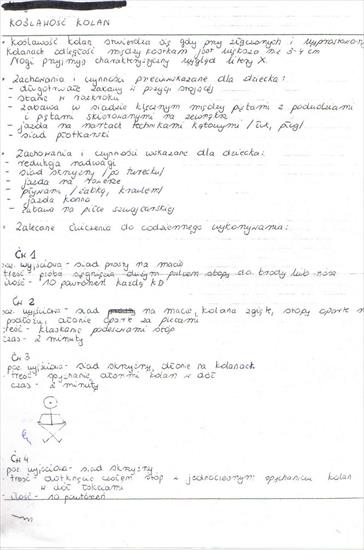 KOŚLAWOŚĆ KOLAN
• Koślawość kolan stwierdza się gdy przy złączonych i wyprostowanych
kolanach odległość między kostkami jest większa niż 3-4 cm
Nogi przyjmują charakterystyczny wygląd litery X.
• Zachowania i czynności przeciwwskazane dla dziecka:
- długotrwałe zabawy w pozycji stojącej
- stanie w rozkroku
- zabawa w siadzie klęcznym między piętami z podudziami
i piętami skierowanymi na zewnątrz
- jazda na nartach technikami kątowymi /łuk, pług/
- siad płotkarski
• Zachowania i czynności wskazane dla dziecka:
- redukcja nadwagi
- siad skrzyżny /po turecku/
- jazda na rowerze
- pływanie /żabką, kraulem/
- jazda konna
- zabawa na piłce szwajcarskiej
• Zalecane ćwiczenia do codziennego wykonywania:
Ćw 1
poz. wyjściowa - siad prosty na macie
treść - próba sięgnięcia dużym palcem stopy do brody lub nosa
ilość - 10 powtórzeń każdą KD
Ćw 2
poz. wyjściowa - siad na macie, kolana zgięte, stopy oparte o
podłożu, dłonie oparte za plecami
treść - klaskanie podeszwami stóp
czas - 2 minuty
Ćw 3
poz. wyjściowa - siad skrzyżny, dłonie na kolanach
treść - spychanie dłońmi kolan w dół
czas - 2 minuty
Ćw 4
poz. wyjściowa - siad skrzyżny
treść - dotknięcie czołem stóp z jednoczesnym spychaniem kolan
w dół łokciami
ilość - 10 powtórzeń